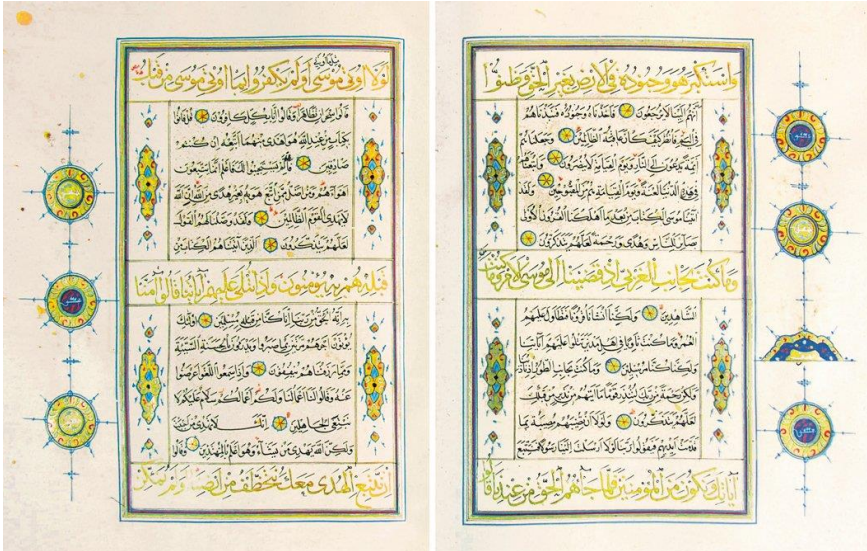 واستكبر هو وجنوده في الارض بغير الحق وظنوا
انهم الينا لا يرجعون فاخذناه وجنوده فنبذناهم
في اليم فانظر كيف كان عاقبة الظالمين وجعلناهم
ائمة يدعون الى النار ويوم القيامة لا ينصرون واتبعناهم
في هذه الدنيا لعنة ويوم القيامة هم من المقبوحين ولقد
اتينا موسى الكتاب من بعد ما اهلكنا القرون الاولى
بصائر للناس وهدى ورحمة لعلهم يتذكرون
وما كنت بجانب الغربي اذ قضينا الى موسى الامر وما كنت من
الشاهدين ولكنا انشأنا قرونا فتطاول عليهم
العمر وما كنت ثاويا في اهل مدين تتلوا عليهم اياتنا
ولكنا كنا مرسلين وما كنت بجانب الطور اذ نادينا
ولكن رحمة من ربك لتنذر قوما ما اتيهم من نذير من قبلك
لعلهم يتذكرون ولولا ان تصيبهم مصيبة بما
قدمت ايديهم فيقولوا ربنا لولا ارسلت الينا رسولا فنتبع
اياتك ونكون من المؤمنين فلما جاءهم الحق من عندنا قالوا
لولا اوتي مثل ما اوتي موسى اولم يكفروا بما اوتي موسى من قبل
قالوا سحران تظاهرا وقالوا انا بكل كافرون قل فأتوا
بكتاب من عند الله هو اهدى منهما اتبعه ان كنتم
صادقين فان لم يستجيبوا لك فاعلم انما يتبعون
اهواءهم ومن اضل ممن اتبع هويه بغير هدى من الله ان الله
لا يهدي القوم الظالمين ولقد وصلنا لهم القول
لعلهم يتذكرون الذين اتيناهم الكتاب من
قبله هم به يؤمنون واذا يتلى عليهم قالوا امنا
به انه الحق من ربنا انا كنا من قبله مسلمين اولئك
يؤتون اجرهم مرتين بما صبروا ويدرؤن بالحسنة السيئة
ومما رزقناهم ينفقون واذا سمعوا اللغو اعرضوا
عنه وقالوا لنا اعمالنا ولكم اعمالكم سلام عليكم لا
نبتغي الجاهلين انك لا تهدي من احببت
ولكن الله يهدي من يشاء وهو اعلم بالمهتدين وقالوا
ان نتبع الهدى معك نتخطف من ارضنا اولم نمكن